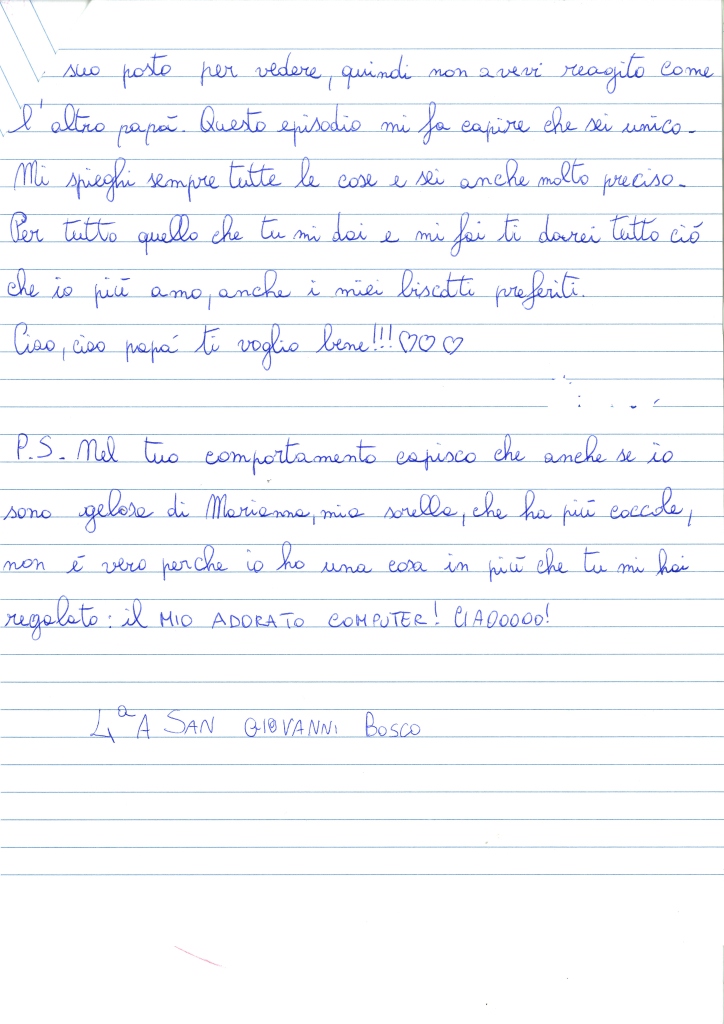 suo posto per vedere, quindi non avevi reagito come
l'altro papá. Questo episodio mi fa capire che sei unico.
Mi spieghi sempre tutte le cose e sei anche molto preciso.
Per tutto quello che tu mi dai e mi fai ti darei tutto ció
che io piú amo, anche i miei biscotti preferiti.
Ciao, ciao papá ti voglio bene!!!♡♡♡
P.S. Nel tuo comportamento capisco che anche se io
sono gelosa di Marianna, mia sorella, che ha piú coccole,
non é vero perche io ho una cosa in piú che tu mi hai
regalato: il MIO ADORATO COMPUTER! CIAOOOOO!
4ª A SAN GIOVANNI BOSCO